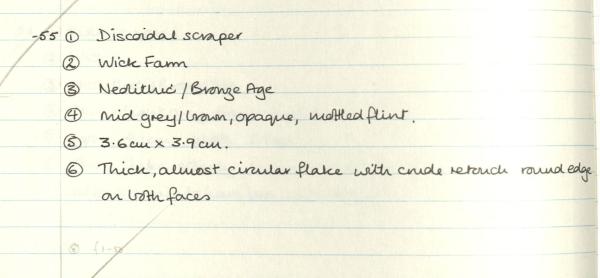 -55 ① Discoidal scraper
② Wick Farm
③ Neolithic / Bronze Age
④ Mid grey/brown, opaque, mottled flint.
⑤ 3.6cm x 3.9cm.
⑥ Thick, almost circular flake with crude retouch round edge
on both faces